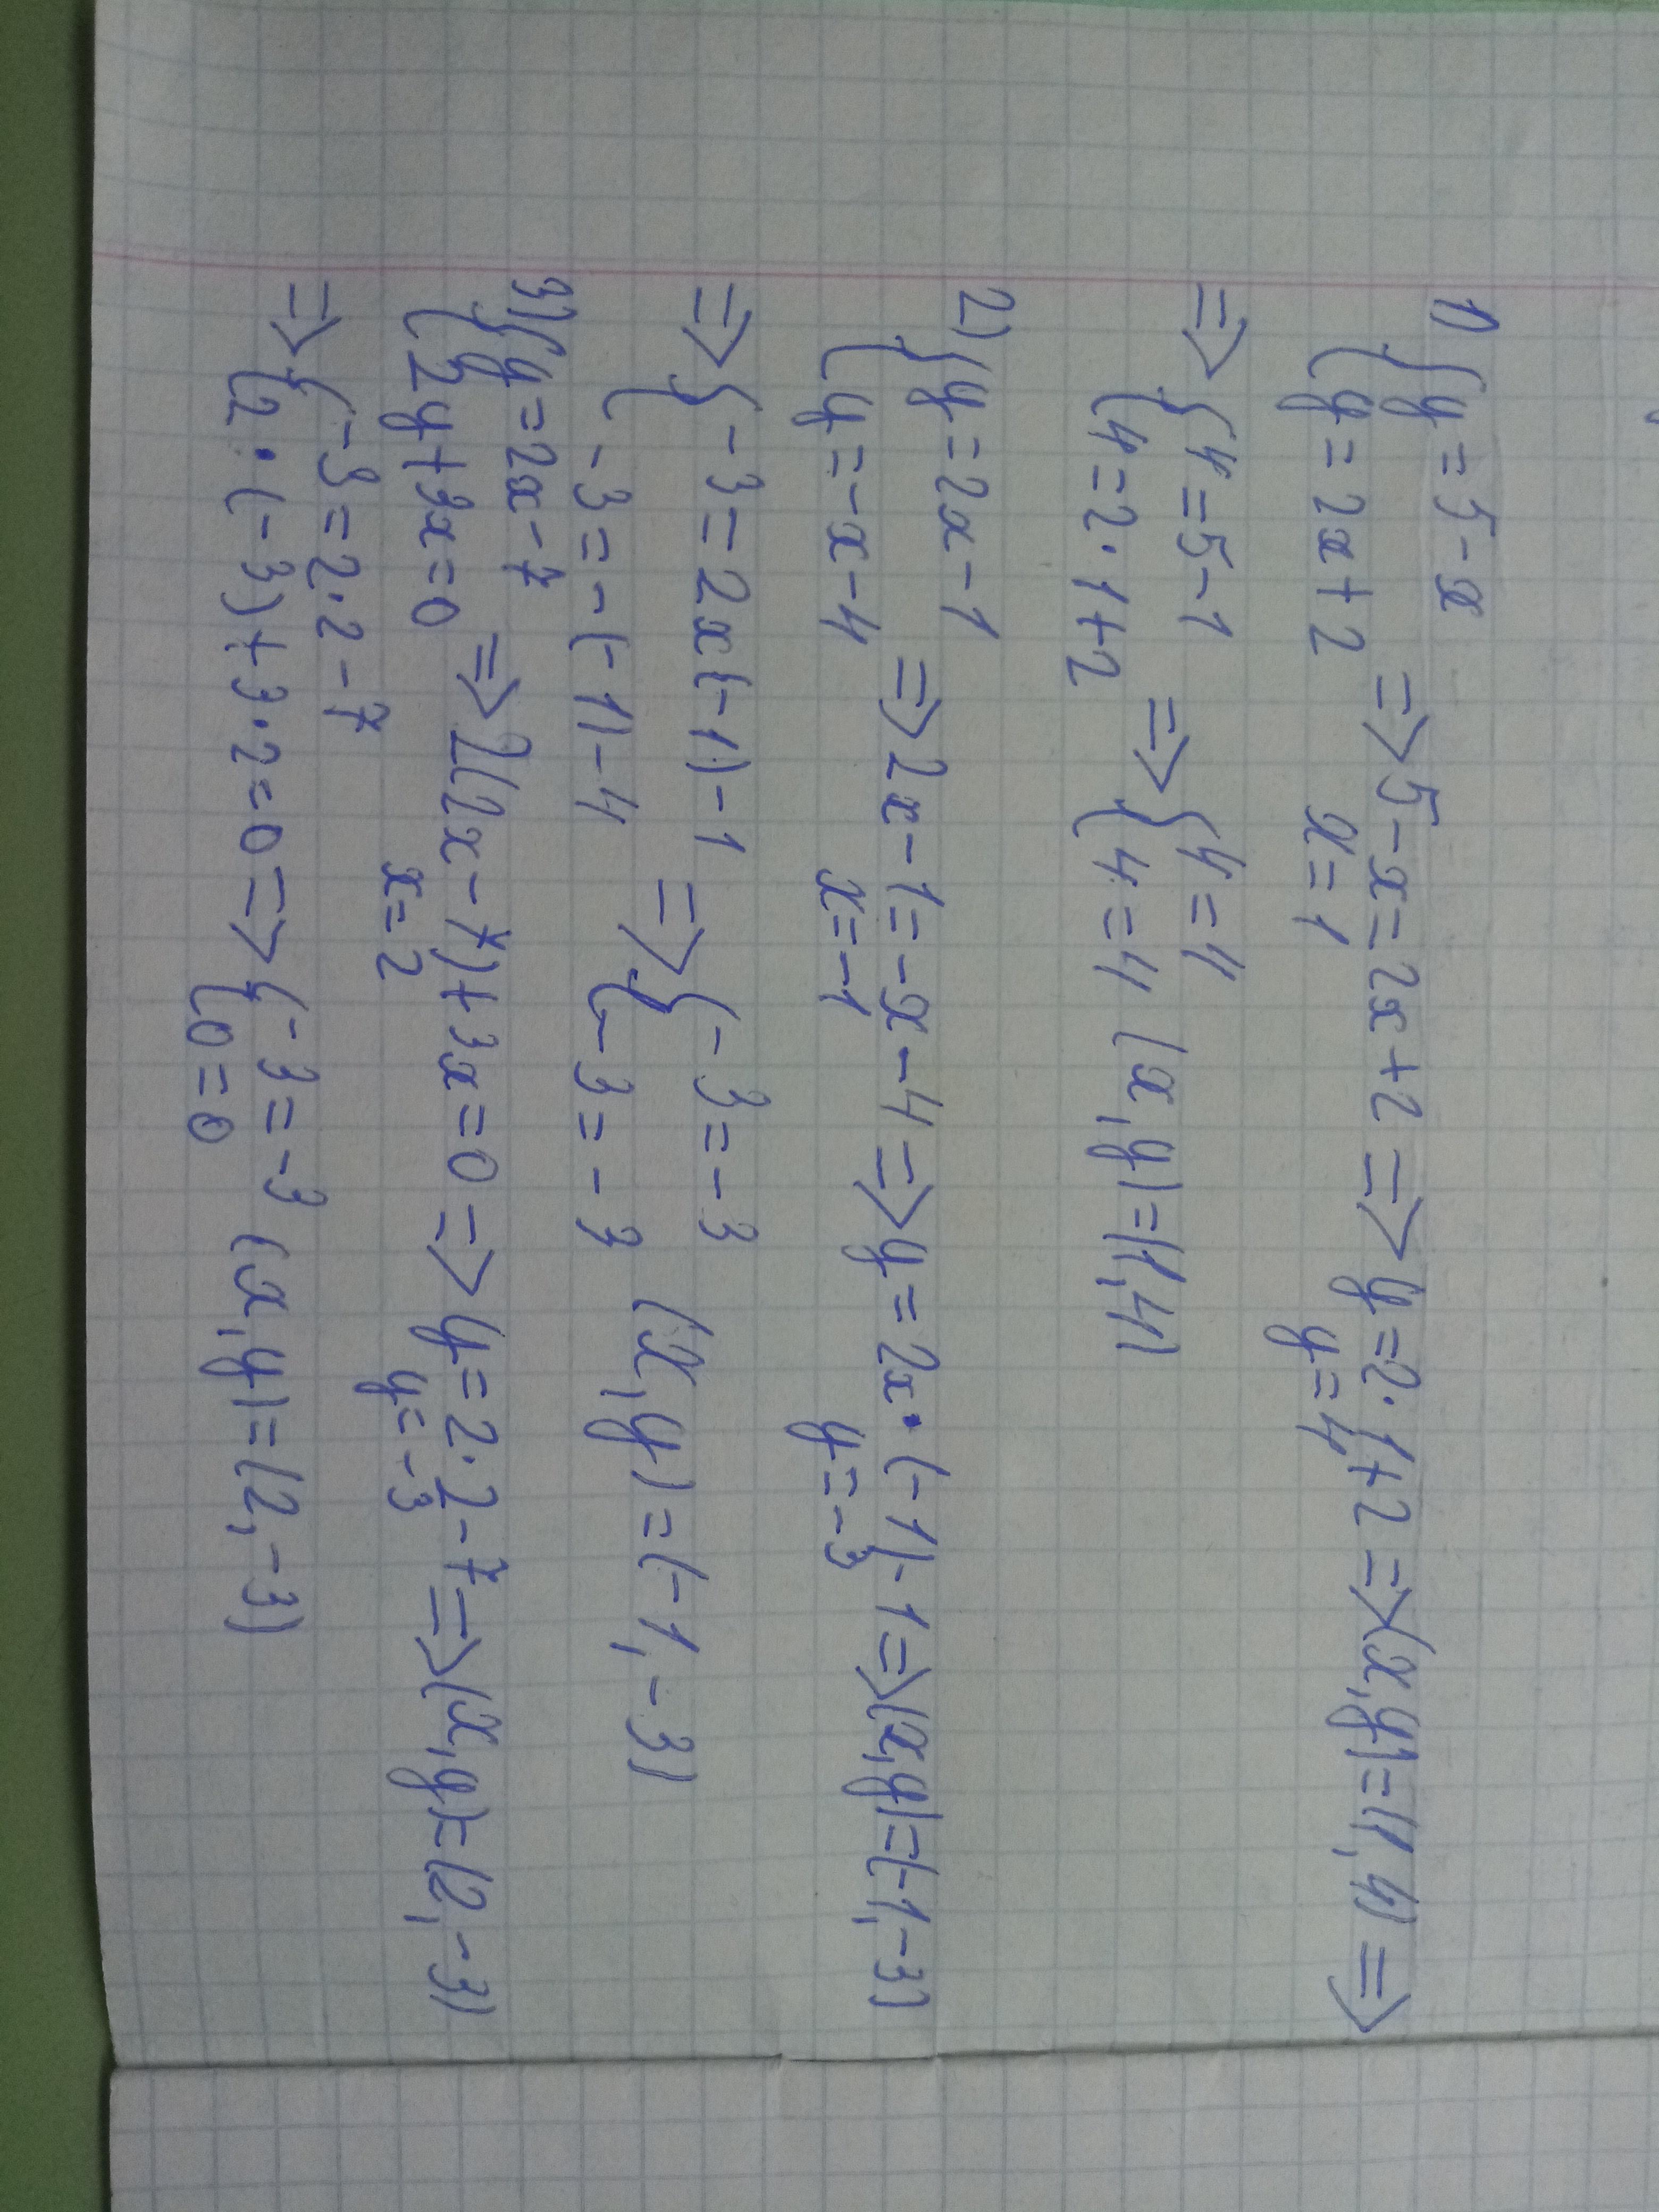 1) {y=5-x
{y=2x+2 => 5-x=2x+2 => y=2·1+2 => (x,y)=(1,4) =>
x=1 y=4
=> {4=5-1
{4=2·1+2 => {4=4
{4=4 (x,y)=(1,4)
2) {y=2x-1
{y=-x-4 => 2x-1=-x-4 => y=2x·(-1)-1 => (x,y)=(-1,-3)
x=-1 y=-3
=> {-3=2x(-1)-1
{-3=-(-1)-4 => {-3=-3
{-3=-3 (x,y)=(-1,-3)
3) {y=2x-7
{2y+3x=0 => 2(2x-7)+3x=0 => y=2·2-7 => (x,y)=(2,-3)
x=2 y=-3
=> {-3=2·2-7
{2·(-3)+3·2=0 => {-3=-3
{0=0 (x,y)=(2,-3)